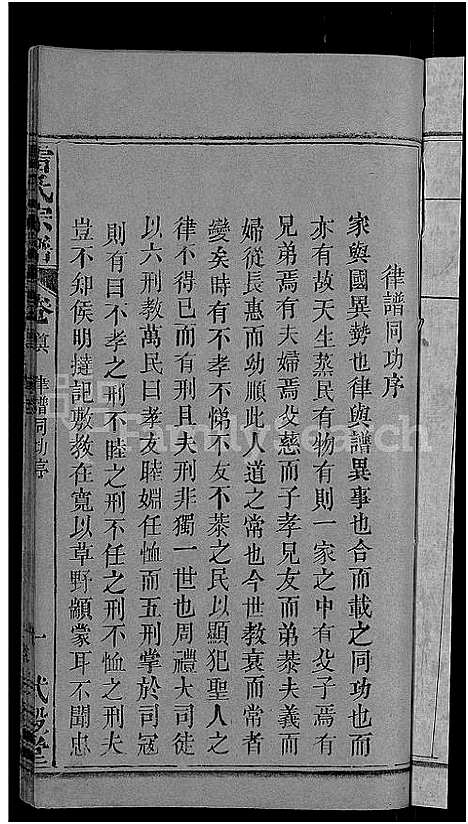 律譜同功序
家與國異勢也律與譜異事也合而載之同功也而
亦有故天生蒸民有物有則一家之中有父子焉有
兄弟焉有夫婦焉父慈而子孝兄友而弟恭夫義而
婦從長惠而幼順此人道之常也今世教衰而常者
變矣時有不孝不悌不友不恭之民以顯犯聖人之
律不得已而有刑且夫刑非獨一世也周禮大司徒
以六刑教萬民曰孝友睦婣任恤而五刑掌於司寇
則有曰不孝之刑不睦之刑不任之刑不恤之刑夫
豈不知侯明撻記敷教在寬以草野顓蒙耳不聞忠
氏宗譜
卷
律譜同功序
一
FamilySearch